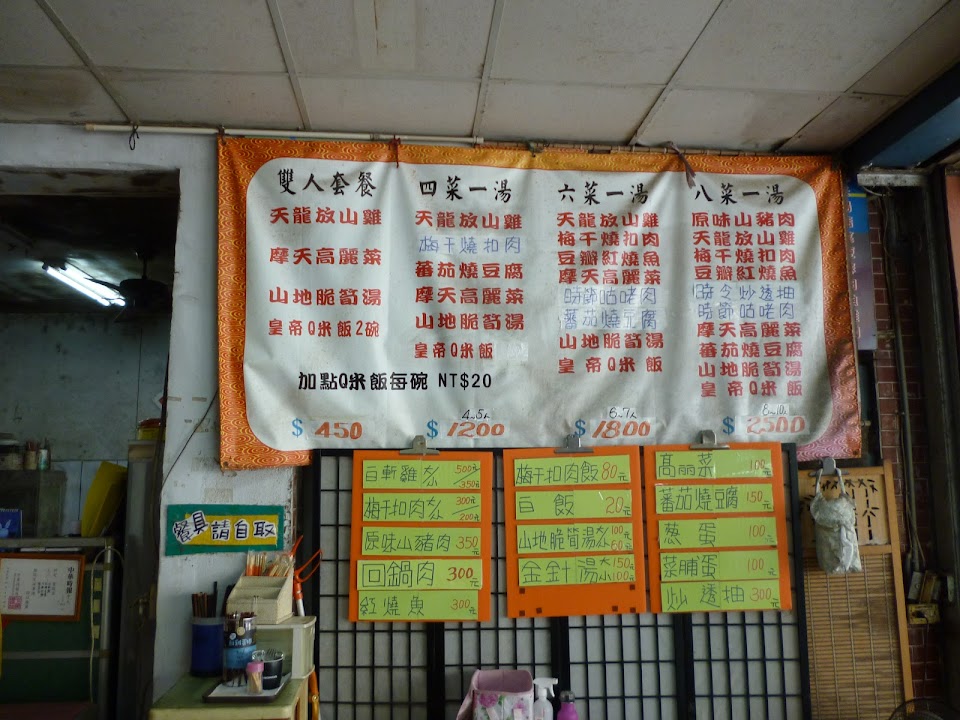 雙人套餐
天龍放山雞
摩天高麗菜
山地脆筍湯
皇帝Q米飯2碗
四菜一湯
天龍放山雞
梅干燒扣肉
蕃茄燒豆腐
摩天高麗菜
山地脆筍湯
皇帝Q米飯
六菜一湯
天龍放山雞
梅干燒扣肉
豆瓣紅燒魚
摩天高麗菜
時節咕咾肉
蕃茄燒豆腐
山地脆筍湯
皇帝Q米飯
八菜一湯
原味山豬肉
天龍放山雞
梅干燒扣肉
豆瓣紅燒魚
時令炒透抽
時節咕咾肉
摩天高麗菜
蕃茄燒豆腐
山地脆筍湯
皇帝Q米飯
加點Q米飯每碗 NT$20
$ 450
4~5人
$ 1200
6~7人
$ 1800
8~10人
$ 2500
白斬雞大小 500元 350元
梅干扣肉大小 300元 200元
原味山豬肉 350元
回鍋肉 300元
紅燒魚 300元
梅干扣肉飯80元
白飯 20元
山地脆筍湯大小 100元 60元
金針湯大小 150元 100元
高丽菜 100元
蕃茄燒豆腐 150元
葱蛋 100元
菜脯蛋 100元
炒透抽 300元
餐具請自取